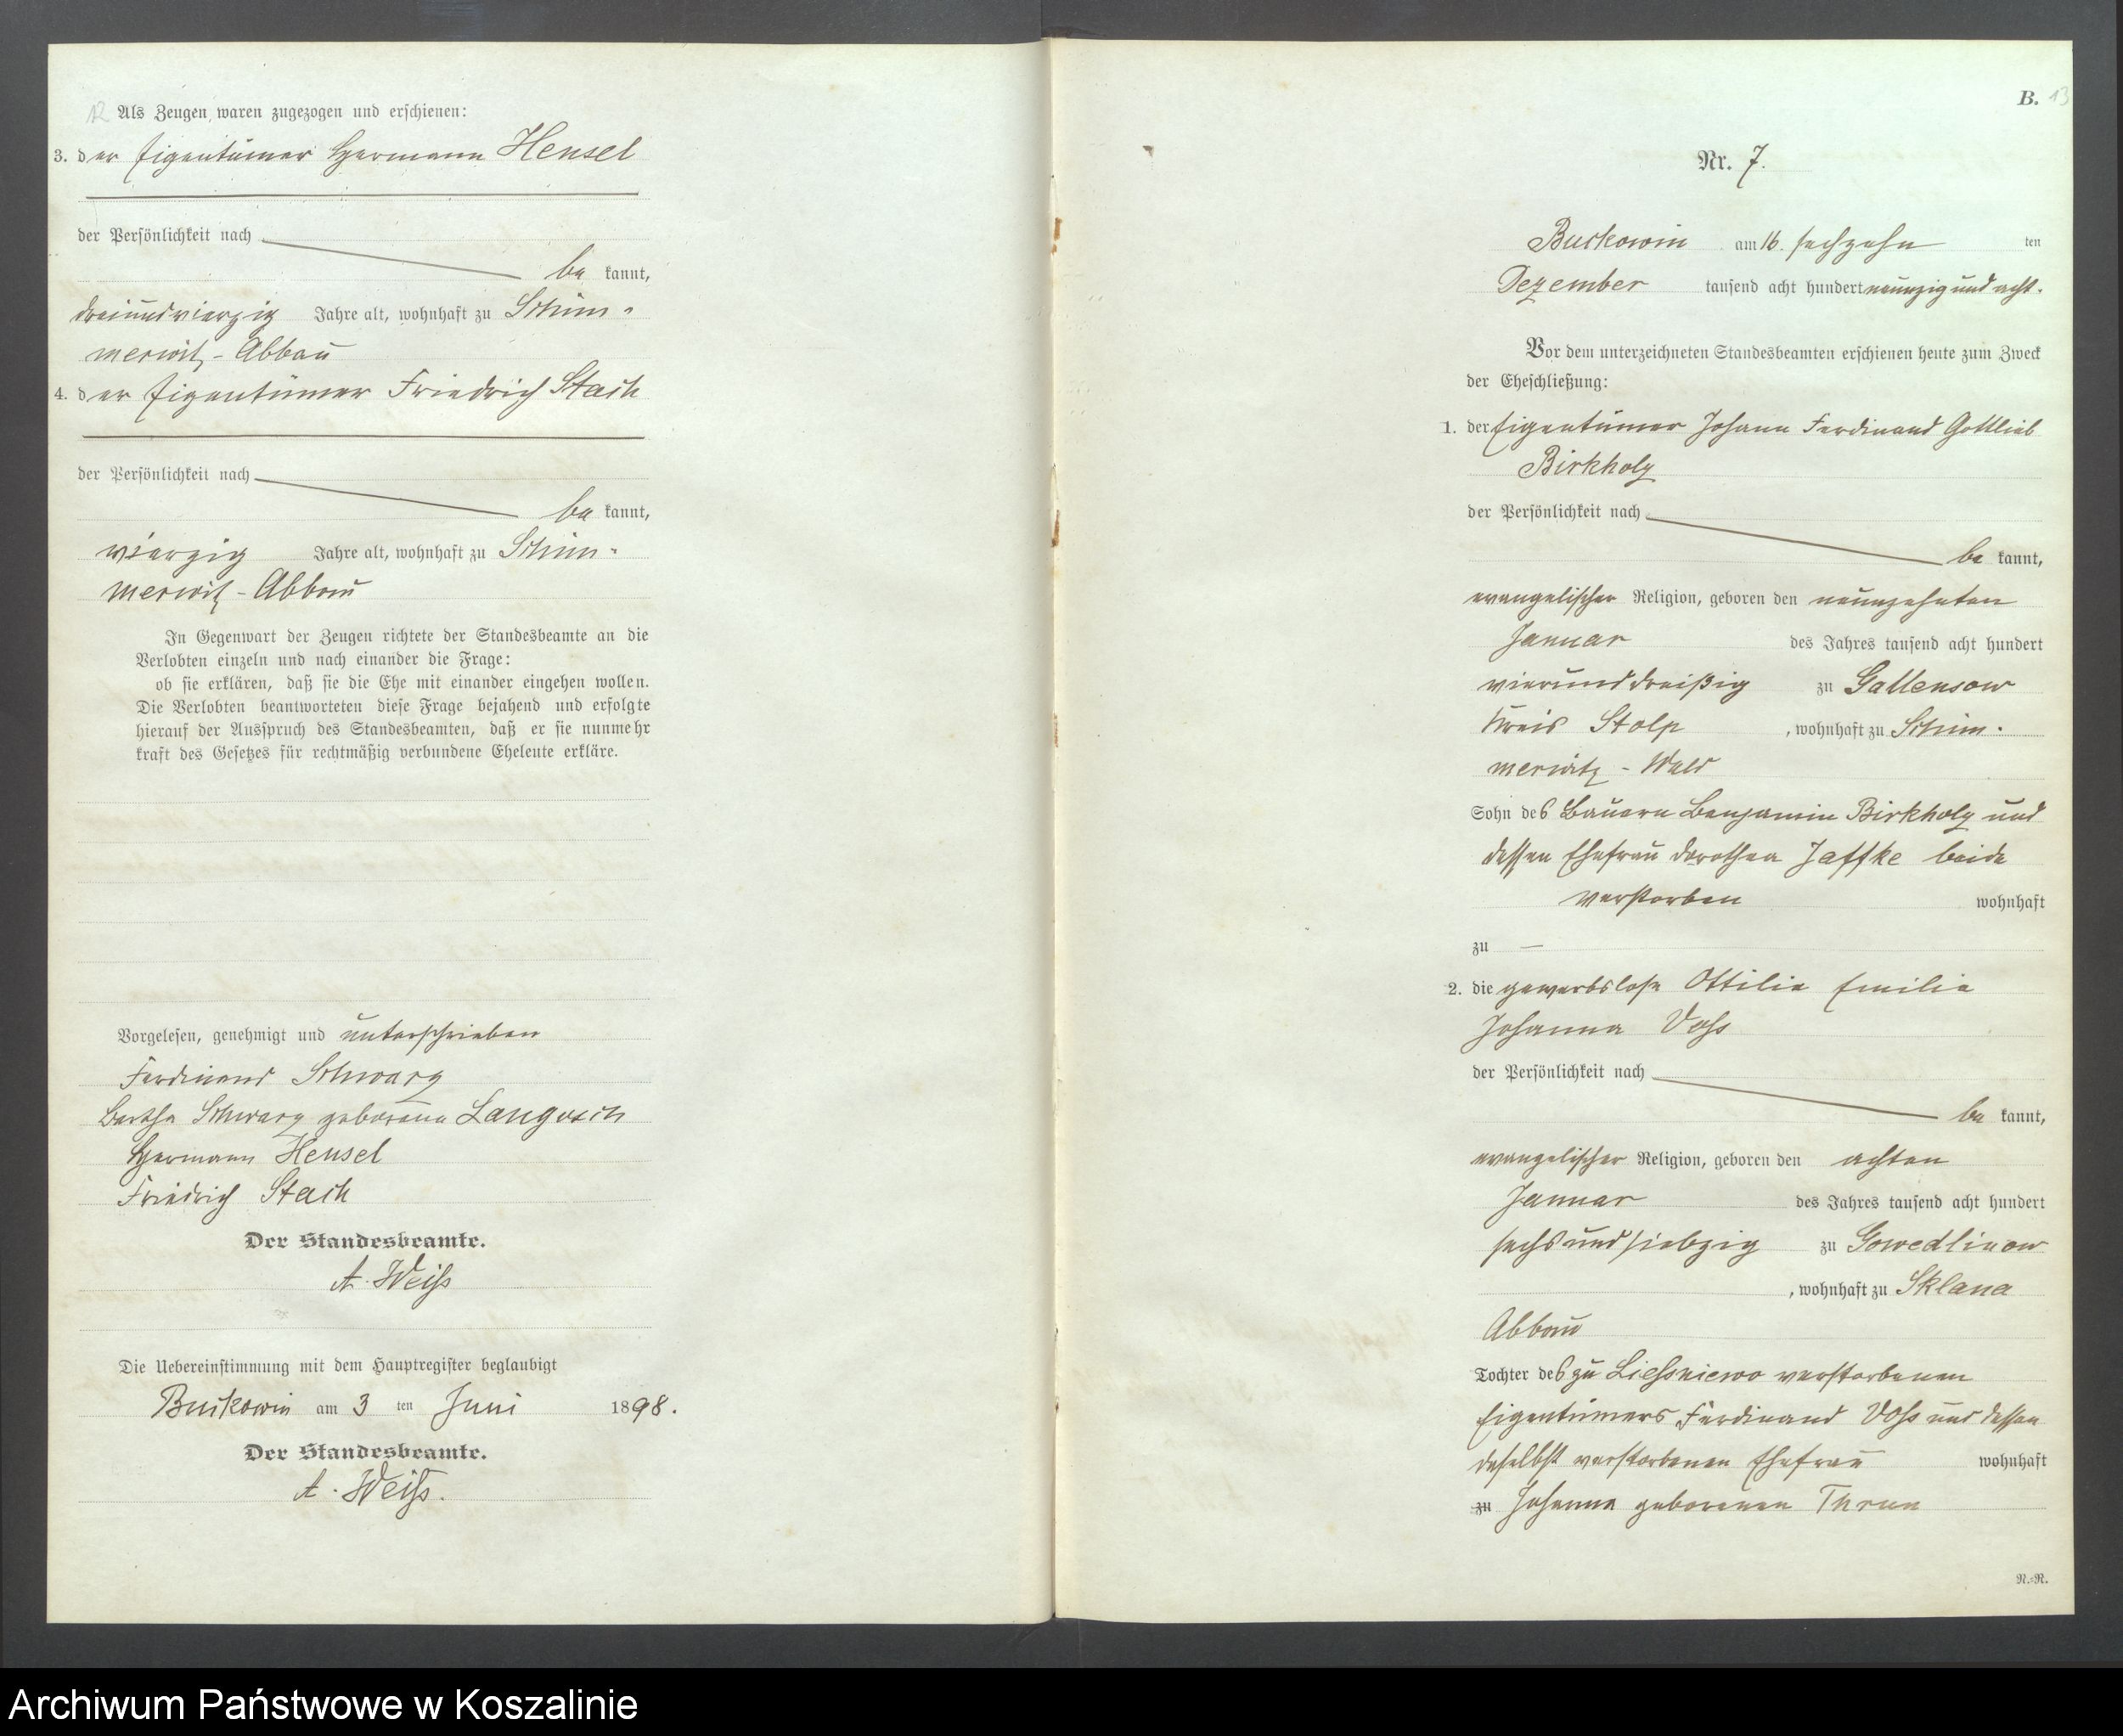 12 Als Zeugen waren zugezogen und erschienen:
3. der Eigentümer Hermann Hensel
der Persönlichkeit nach
be kannt,
dreiundvierzig Jahre alt, wohnhaft zu Schim-
merwitz-Abbau
4. der Eigentümer Friedrich Stach
der Persönlichkeit nach
be kannt,
vierzig Jahre alt, wohnhaft zu Schim-
merwitz-Abbau
In Gegenwart der Zeugen richtete der Standesbeamte an die
Verlobten einzeln und nach einander die Frage:
ob sie erklären, daß sie die Ehe mit einander eingehen wollen.
Die Verlobten beantworteten diese Frage bejahend und erfolgte
hierauf der Ausspruch des Standesbeamten, daß er sie nunmehr
kraft des Gesetzes für rechtmäßig verbundene Eheleute erkläre.
Vorgelesen, genehmigt und unterschrieben
Ferdinand Schwarz
Bertha Schwarz geborene Langosch
Hermann Hensel
Friedrich Stach
Der Standesbeamte.
A. Weiß
Die Uebereinstimmung mit dem Hauptregister beglaubigt
Buckowin am 3 ten Juni 1898.
Der Standesbeamte.
A. Weiß.
B. 13
Nr. 7.
Buckowin am 16. sechzehn ten
Dezember tausend acht hundert neunzig und acht.
Vor dem unterzeichneten Standesbeamten erschienen heute zum Zweck
der Eheschließung:
1. der Eigentümer Johann Ferdinand Gottlieb
Birkholz
der Persönlichkeit nach
be kannt,
evangelischer Religion, geboren den neunzehnten
Januar des Jahres tausend acht hundert
vierunddreißig zu Gallensow
Kreis Stolp, wohnhaft zu Schim-
merwitz-Wald
Sohn des Bauern Benjamin Birkholz und
dessen Ehefrau Dorothea Jaffke beide
verstorben wohnhaft
zu —
2. die gewerbslose Ottilie Emilie
Johanna Voß
der Persönlichkeit nach
be kannt,
evangelischer Religion, geboren den achten
Januar des Jahres tausend acht hundert
sechs und siebzig zu Gowedlinow
, wohnhaft zu Sklana
Abbau
Tochter des zu Ließniewo verstorbenen
Eigentümers Ferdinand Voß und dessen
daselbst verstorbenen Ehefrau wohnhaft
zu Johanna geborenen Thrun
R.-R.
Archiwum Państwowe w Koszalinie